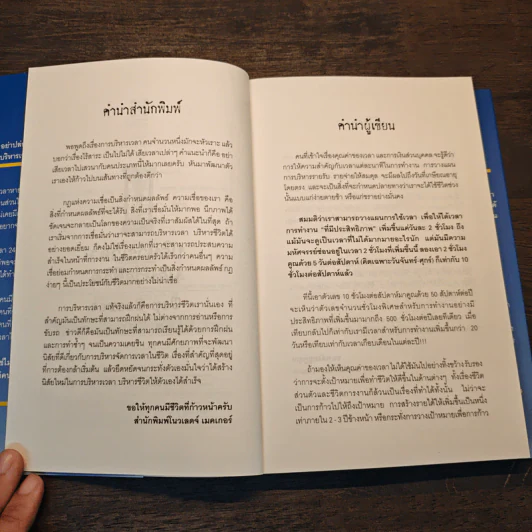 คำนำสำนักพิมพ์
พอพูดถึงเรื่องการบริหารเวลา คนจำนวนหนึ่งมักจะหัวเราะ แล้ว
บอกว่าเรื่องไร้สาระ เป็นไปไม่ได้ เสียเวลาเปล่าๆ คำแนะนำก็คือ อย่า
เสียเวลาไปเสวนากับคนประเภทนี้ให้มากเลยครับ หันมาพัฒนาตัว
เราเองให้ก้าวไปบนเส้นทางที่ถูกต้องดีกว่า
กฎแห่งความเชื่อเป็นสิ่งกำหนดผลลัพธ์ ความเชื่อของเรา คือ
สิ่งที่กำหนดผลลัพธ์ที่จะได้รับ สิ่งที่เราเชื่อมั่นให้มากพอ นึกภาพได้
ชัดเจนจะกลายเป็นโลกของความเป็นจริงที่เราสัมผัสได้ในที่สุด ถ้า
เราเริ่มจากการเชื่อมั่นว่าเราจะสามารถบริหารเวลา บริหารชีวิตได้
อย่างยอดเยี่ยม ก็คงไม่ใช่เรื่องแปลกที่เราจะสามารถประสบความ
สำเร็จในหน้าที่การงาน ในชีวิตครอบครัวได้เร็วกว่าคนอื่นๆ ความ
เชื่อย่อมกำหนดการกระทำ และการกระทำเป็นสิ่งกำหนดผลลัพธ์ กฎ
ง่ายๆ นี้เป็นประโยชน์กับชีวิตมากอย่างไม่น่าเชื่อ
การบริหารเวลา แท้จริงแล้วก็คือการบริหารชีวิตเรานั่นเอง ที่
สำคัญมันเป็นทักษะที่สามารถฝึกฝนได้ ไม่ต่างจากการอ่านหรือการ
ขับรถ ข่าวดีก็คือมันเป็นทักษะที่สามารถเรียนรู้ได้ด้วยการฝึกฝน
และการทำซ้ำๆ จนเป็นความเคยชิน ทุกคนมีศักยภาพที่จะพัฒนา
นิสัยที่ดีเกี่ยวกับการบริหารจัดการเวลาในชีวิต เรื่องที่สำคัญที่สุดอยู่
ที่การต้องกล้าเริ่มต้น แล้วยืดหยัดจนกระทั่งตัวเองมั่นใจว่าได้สร้าง
นิสัยใหม่ในการบริหารเวลา บริหารชีวิตให้ตัวเองได้สำเร็จ
ขอให้ทุกคนมีชีวิตที่ก้าวหน้าครับ
สำนักพิมพ์โนวเลดจ์ เมคเกอร์
คำนำผู้เขียน
คนที่เข้าใจเรื่องคุณค่าของเวลา และการเงินส่วนบุคคล จะรู้ดีว่า
การให้ความสำคัญกับเวลาแต่ละนาทีในการทำงาน การวางแผน
การบริหารรายรับ รายจ่ายให้สมดุล จะมีผลไปถึงวันที่เกษียณอายุ
โดยตรง และจะเป็นสิ่งที่จะกำหนดปลายทางว่าเราจะได้ใช้ชีวิตช่วง
นั้นแบบแก่ง่ายตายช้า หรือแก่ช้าอยู่อย่างมีความสุข
สมมติว่าเราสามารถวางแผนการใช้เวลา เพื่อให้ได้เวลา
การทำงาน "ที่มีประสิทธิภาพ" เพิ่มขึ้นแค่วันละ 2 ชั่วโมง ถึง
แม้มันจะดูเป็นเวลาที่ไม่ได้มากมายอะไรนัก แต่มันมีความ
มหัศจรรย์ซ่อนอยู่ในเวลา 2 ชั่วโมงที่เพิ่มขึ้นนี้ ลองเอา 2 ชั่วโมง
คูณด้วย 5 วันต่อสัปดาห์ (คิดเฉพาะวันจันทร์-ศุกร์) ก็เท่ากับ 10
ชั่วโมงต่อสัปดาห์แล้ว
ทีนี้เอาตัวเลข 10 ชั่วโมงต่อสัปดาห์มาคูณด้วย 50 สัปดาห์ต่อปี
จะเห็นว่าตัวเลขจำนวนชั่วโมงพิเศษสำหรับการทำงานอย่างมี
ประสิทธิภาพที่เพิ่มขึ้นมามากถึง 500 ชั่วโมงต่อปีเลยทีเดียว เมื่อ
เทียบกลับไปก็เท่ากับเรามีเวลาสำหรับการทำงานเพิ่มขึ้นกว่า 20
วันหรือเทียบเท่ากับเวลาเกือบเดือนในแต่ละปี!!!
ถ้ามองให้เห็นคุณค่าของเวลา ไม่ได้ใช้มันไปอย่างทิ้งขว้าง รับรอง
ว่าการจะตั้งเป้าหมายเพื่อทำชีวิตให้ดีขึ้นในด้านต่างๆ ทั้งเรื่องชีวิต
ส่วนตัวและชีวิตการงานก็ล้วนเป็นเรื่องที่จะทำได้ทั้งนั้น ไม่ว่าจะ
เป็นการก้าวไปให้ถึงเป้าหมาย การสร้างรายได้ให้เพิ่มขึ้นเป็นหนึ่ง
เท่าภายใน 2 - 3 ปีข้างหน้า หรือกระทั่งการวางเป้าหมายเพื่อการก้าว